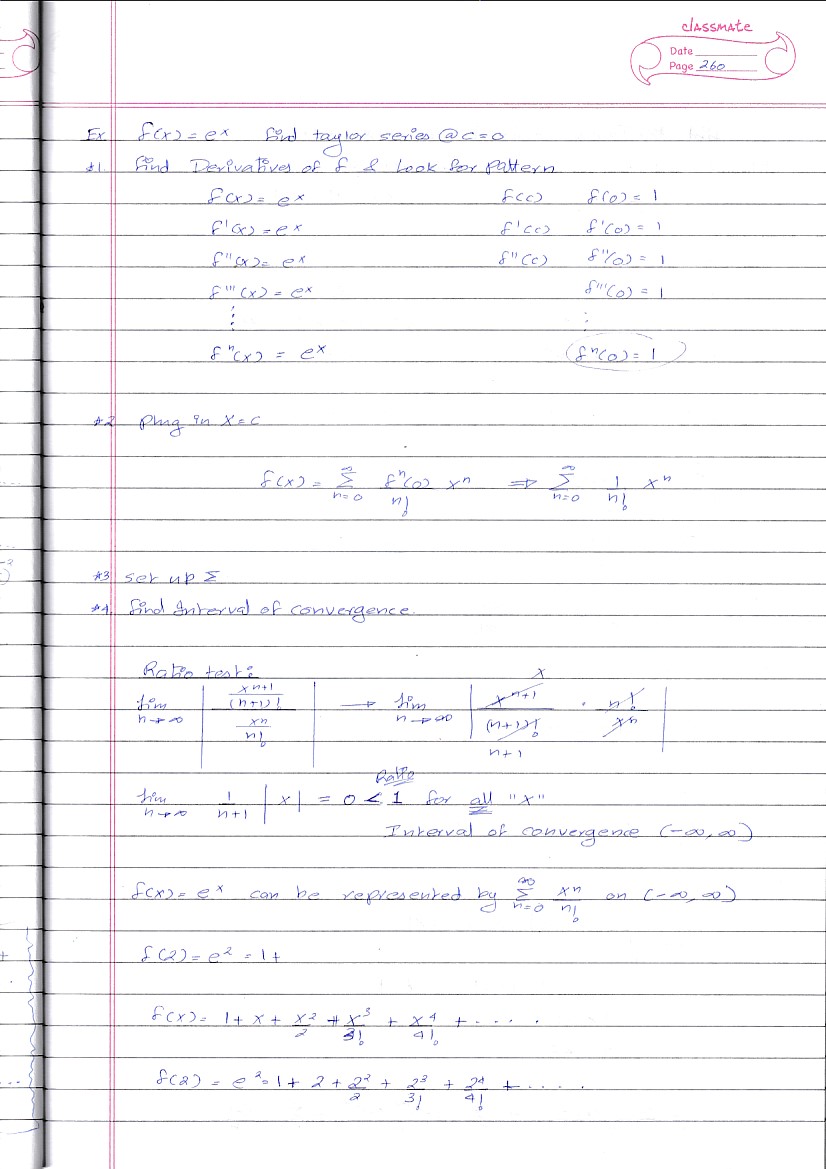 classmate
Date
Page 260
Ex f(x) = e^x find taylor series @ c = 0
#1. find Derivatives of f & Look for pattern
f(x) = e^x f(c) f(0) = 1
f'(x) = e^x f'(c) f'(0) = 1
f''(x) = e^x f''(c) f''(0) = 1
f'''(x) = e^x f'''(0) = 1
⋮ ⋮
f^n(x) = e^x f^n(0) = 1
#2 plug in x = c
f(x) = ∑_{n=0}^{∞} f^n(0)/n! x^n ⇒ ∑_{n=0}^{∞} 1/n! x^n
#3 set up Σ
#4. find Interval of convergence.
Ratio test:
lim_{n→∞} | (x^{n+1}/(n+1)!) / (x^n/n!) | → lim_{n→∞} | x^{n+1}/(n+1)! · n!/x^n |
x
n+1
Ratio
lim_{n→∞} 1/(n+1) |x| = 0 < 1 for all "x"
Interval of convergence (-∞, ∞)
f(x) = e^x can be represented by ∑_{n=0}^{∞} x^n/n! on (-∞, ∞)
f(2) = e^2 = 1 +
f(x) = 1 + x + x^2/2 + x^3/3! + x^4/4! + ....
f(2) = e^2 = 1 + 2 + 2^2/2 + 2^3/3! + 2^4/4! + .....